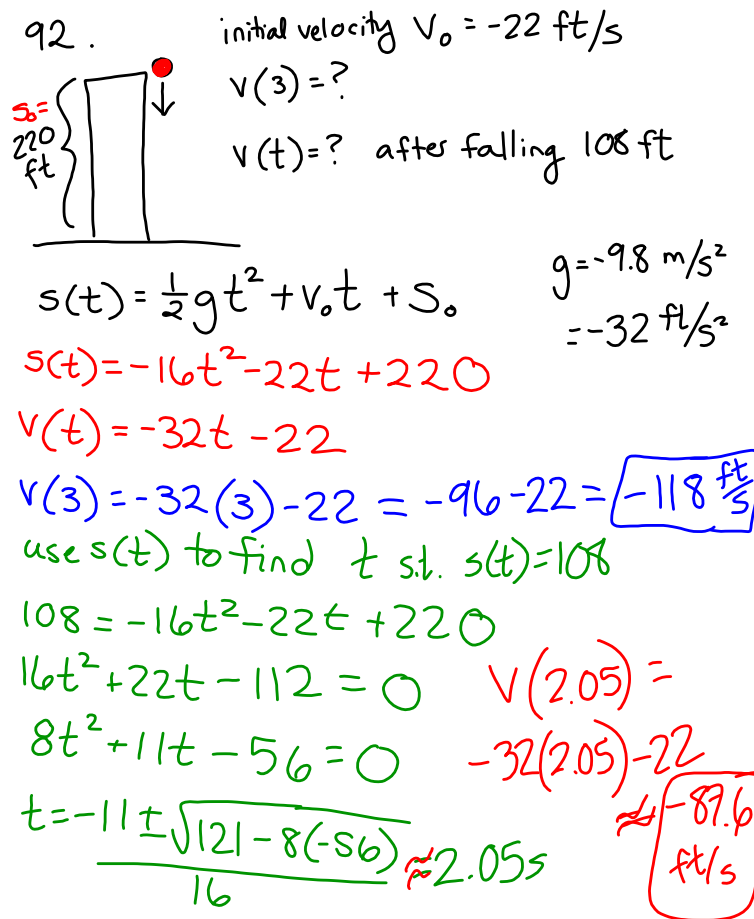 92.
initial velocity V₀ = -22 ft/s
v(3) = ?
s₀=
220
ft
v(t)=? after falling 108 ft
g=-9.8 m/s²
=-32 ft/s²
s(t) = ½gt² + v₀t + S₀
s(t) = -16t² - 22t + 220
v(t) = -32t - 22
v(3) = -32(3) - 22 = -96 - 22 = -118 ft/s
use s(t) to find t s.t. s(t)=108
108 = -16t² - 22t + 220
16t² + 22t - 112 = 0
8t² + 11t - 56 = 0
t = -11 ± √121 - 8(-56) / 16 ≈ 2.05s
V(2.05) =
-32(2.05) - 22
≈ -87.6
ft/s